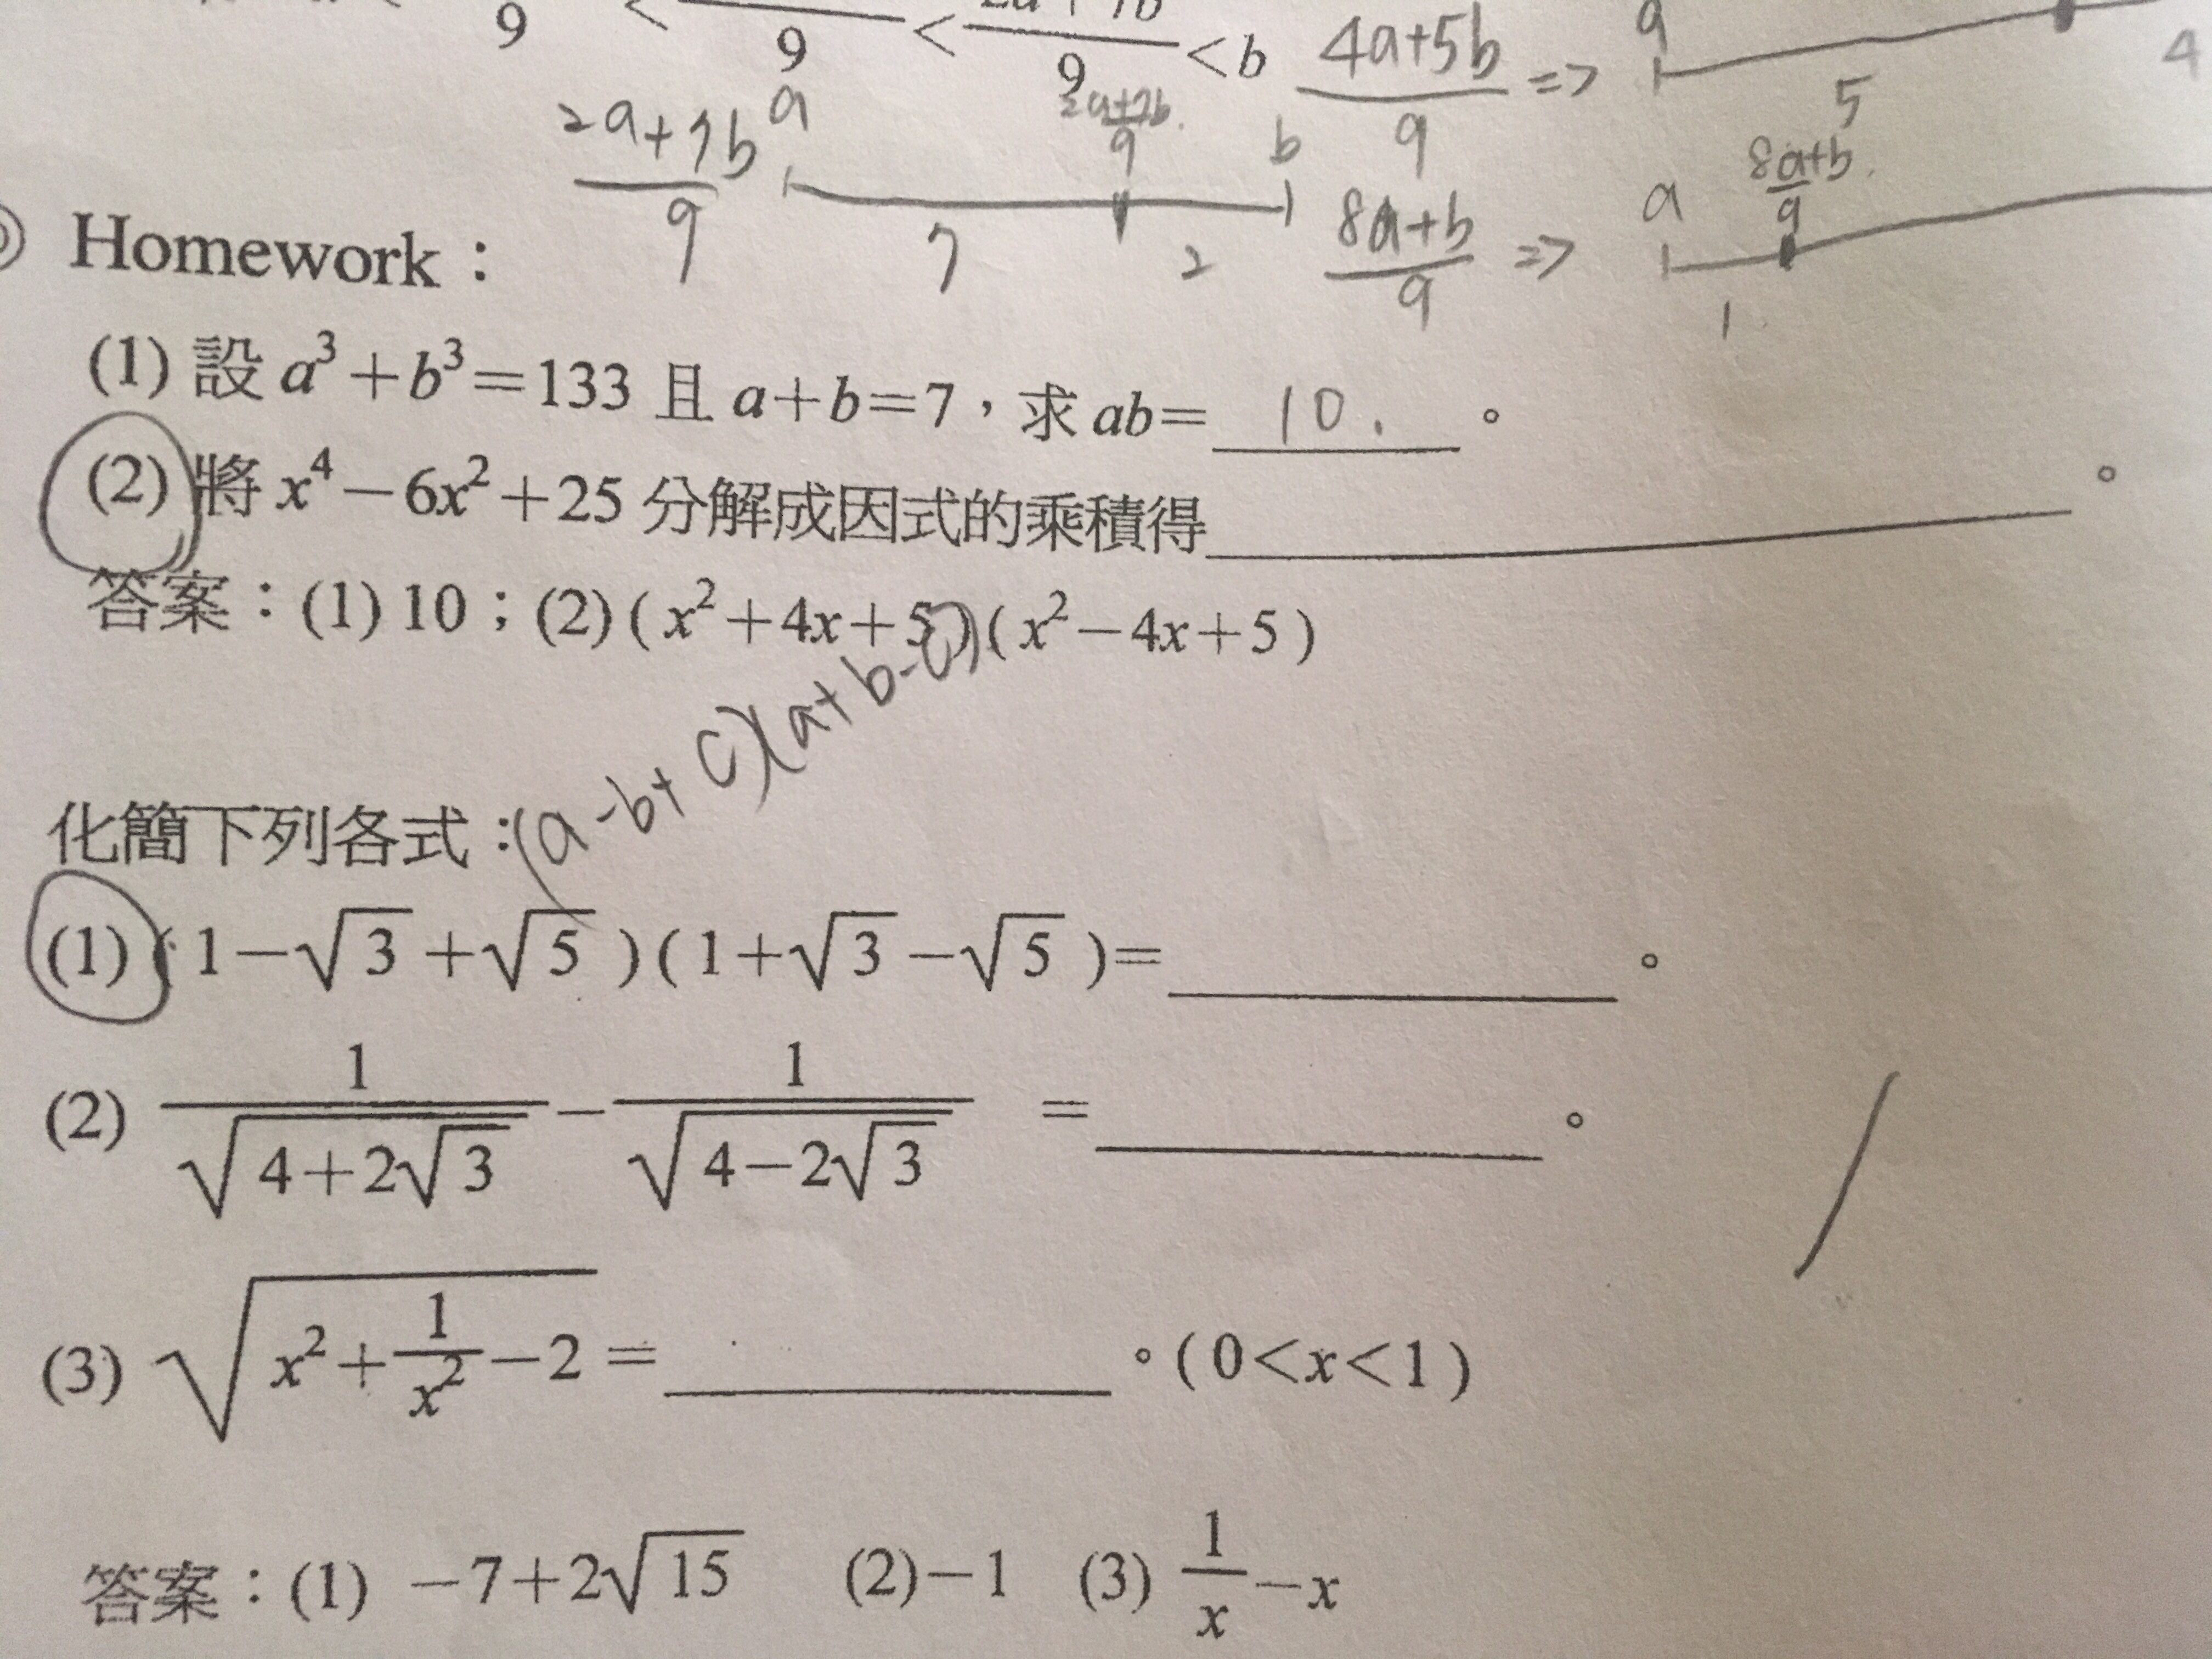 9 < 9 < 9 < b (4a+5b)/9 => a 5 4
(2a+7b)/9 a (2a+7b)/9 b 7 2
(8a+b)/9 => a (8a+b)/9 1
Homework：
(1) 設 a³+b³=133 且 a+b=7，求 ab= 10. 。
(2) 將 x⁴−6x²+25 分解成因式的乘積得________。
答案：(1) 10；(2) ( x²+4x+5 ) ( x²−4x+5 )
(a-b+c)(a+b-c)
化簡下列各式：
(1) ( 1−√3+√5 ) ( 1+√3−√5 )=________。
(2) 1/√(4+2√3) − 1/√(4−2√3) =________。
(3) √(x²+1/x²−2) =________。( 0<x<1 )
答案：(1) −7+2√15 (2)−1 (3) 1/x−x